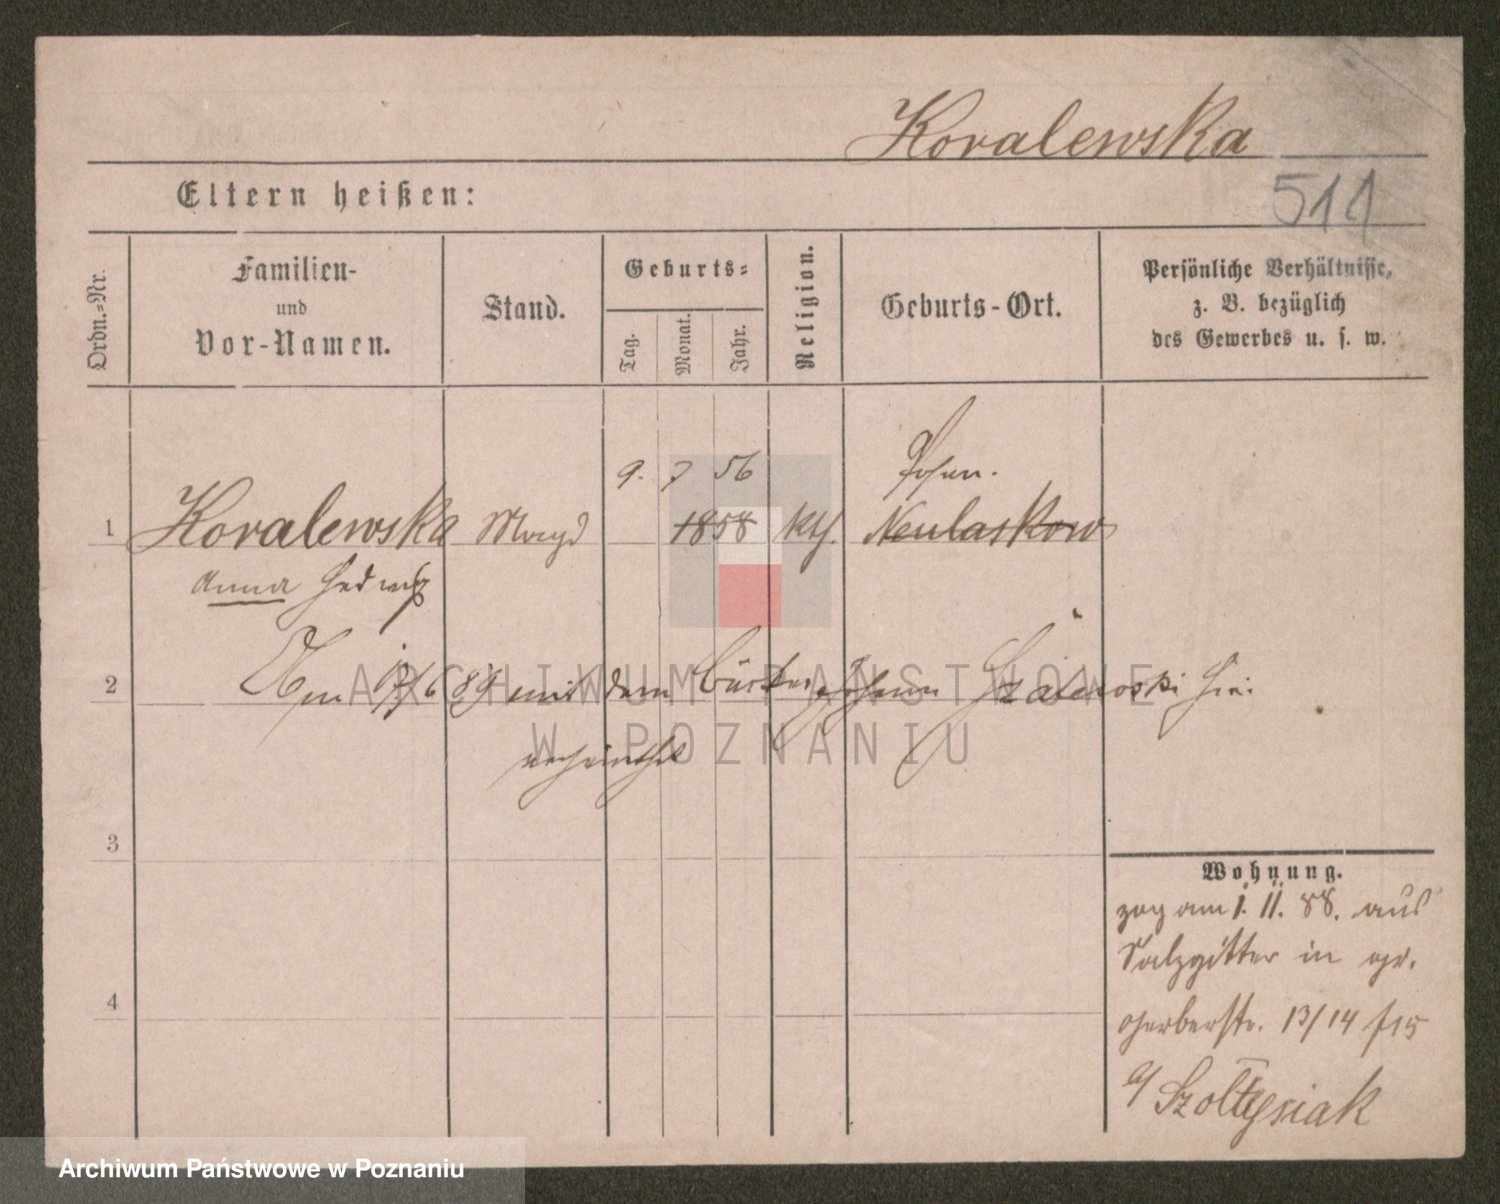 Kovalewska
Eltern heißen:
511
Ordn.-Nr.
Familien-
und
Vor-Namen.
Stand.
Geburts-
Tag.
Monat.
Jahr.
Religion.
Geburts-Ort.
Persönliche Verhältnisse,
z. B. bezüglich
des Gewerbes u. s. w.
9. 7 56
Posen.
1 Kovalewska Magd 1858 kth. Neulaskow
Anna Hedwig
2 Am 6 89 mit dem Johann hier
verheirathet
ARCHIWUM PAŃSTWOWE
W POZNANIU
3
4
Wohnung.
zog am 1. 11. 88. aus
Salzgitter in gr.
Gerberstr. 13/14
b/ Szołtysiak
Archiwum Państwowe w Poznaniu